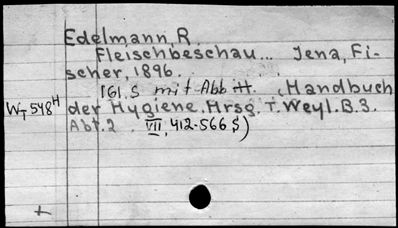 Edelmann, R.
Fleischbeschau... Jena, Fi-
scher, 1896.
161.S mit Abb. (Handbuch
WT 548H der Hygiene. Hrsg. T. Weyl. B.3.
Abt.2. VII, 412-566 S)